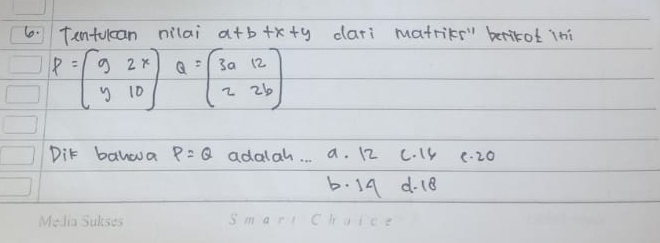 6. Tentukan nilai a+b+x+y dari matriks" berikot ini
P = (9 2x) Q = (3a 12)
(y 10) (2 2b)
Dik bahwa P=Q adalah... a. 12 c. 16 e. 20
b. 14 d. 18
Media Sukses Smart Choice